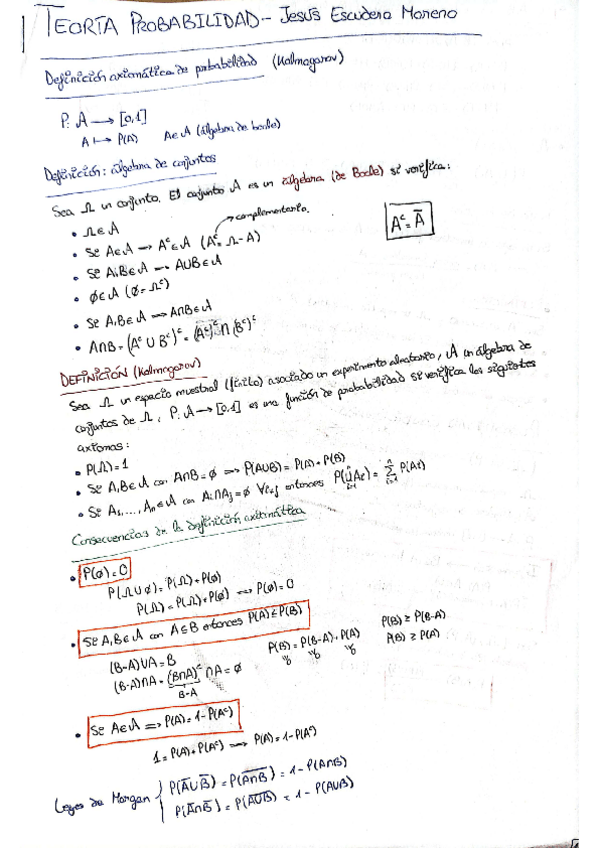 TEORÍA PROBABILIDAD - Jesús Escudero Moreno
Definición axiomática de probabilidad (Kolmogorov)
P: A → [0,1]
A ↦ P(A) A∈A (álgebra de boole)
Definición: álgebra de conjuntos
Sea Ω un conjunto. El conjunto A es un álgebra (de Boole) si verifica:
• Ω∈A
complementario.
• Si A∈A → Aᶜ∈A (Aᶜ = Ω - A)
Aᶜ = Ā
• Si A,B∈A → A∪B∈A
• ∅∈A (∅ = Ωᶜ)
• Si A,B∈A → A∩B∈A
• A∩B = (Aᶜ ∪ Bᶜ)ᶜ = (Aᶜ)ᶜ ∩ (Bᶜ)ᶜ
DEFINICIÓN (Kolmogorov)
Sea Ω un espacio muestral (finito) asociado un experimento aleatorio, A un álgebra de
conjuntos de Ω, P: A → [0,1] es una función de probabilidad si verifica los siguientes
axiomas:
• P(Ω) = 1
• Si A,B∈A con A∩B = ∅ ⟹ P(A∪B) = P(A) + P(B)
• Si A₁, ..., Aₙ∈A con Ai∩Aj = ∅ ∀i≠j entonces P(⋃ᵢ₌₁ⁿ Ai) = Σᵢ₌₁ⁿ P(Ai)
Consecuencias de la definición axiomática
• P(∅) = 0
P(Ω∪∅) = P(Ω) + P(∅)
P(Ω) = P(Ω) + P(∅) ⟹ P(∅) = 0
• Si A,B∈A con A⊆B entonces P(A) ≤ P(B)
(B-A)∪A = B P(B) = P(B-A) + P(A) P(B) ≥ P(B-A)
(B-A)∩A = (B∩A)ᶜ∩A = ∅ P(B) ≥ P(A)
B-A
• Si A∈A ⟹ P(A) = 1 - P(Aᶜ)
1 = P(A) + P(Aᶜ) ⟹ P(A) = 1 - P(Aᶜ)
Leyes de Morgan { P(Ā∪B̄) = P(A∩B)‾ = 1 - P(A∩B)
P(Ā∩B̄) = P(A∪B)‾ = 1 - P(A∪B)